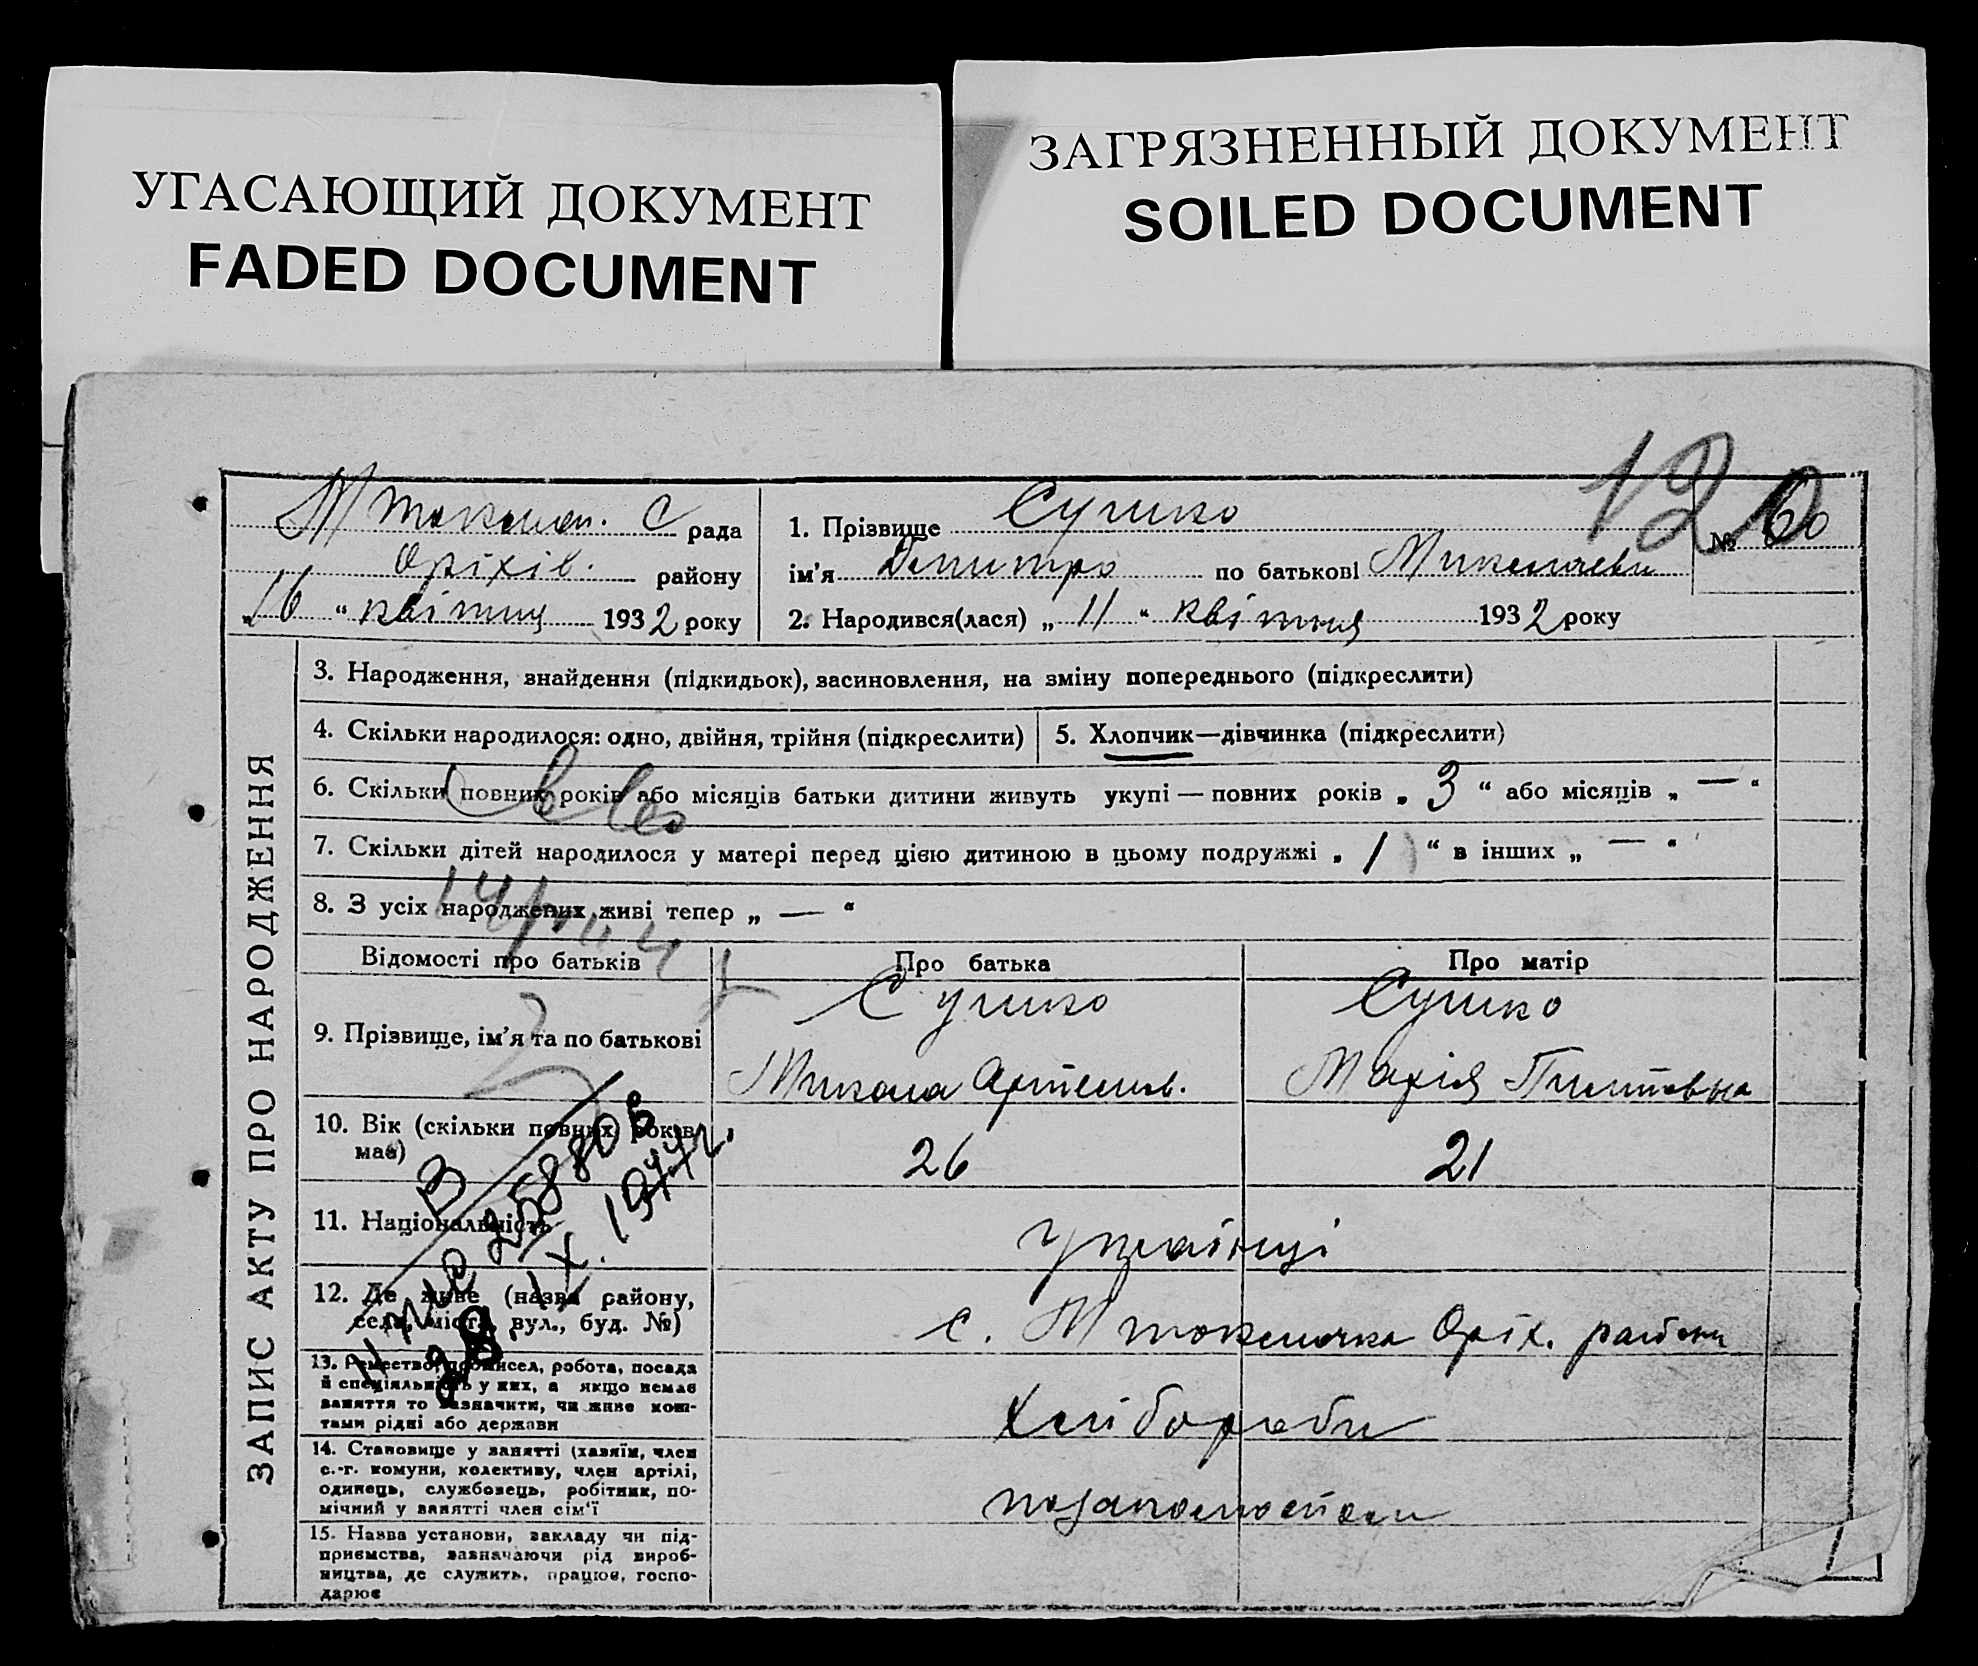 УГАСАЮЩИЙ ДОКУМЕНТ
FADED DOCUMENT
ЗАГРЯЗНЕННЫЙ ДОКУМЕНТ
SOILED DOCUMENT
120
М Токмац. С рада
Оріхів. району
„16“ квітня 1932 року
1. Прізвище Сушко
№ 60
ім’я Дмитро по батькові Миколаєвич
2. Народився(лася) „11“ квітня 1932 року
ЗАПИС АКТУ ПРО НАРОДЖЕННЯ
3. Народження, знайдення (підкидьок), засиновлення, на зміну попереднього (підкреслити)
4. Скільки народилося: одно, двійня, трійня (підкреслити)
5. Хлопчик—дівчинка (підкреслити)
6. Скільки повних років або місяців батьки дитини живуть укупі — повних років „3“ або місяців „—“
7. Скільки дітей народилося у матері перед цією дитиною в цьому подружжі „1“ в інших „—“
8. З усіх народжених живі тепер „—“
Відомості про батьків Про батька Про матір
9. Прізвище, ім’я та по батькові
Сушко Сушко
Микола Артемов. Марія
10. Вік (скільки повних років має) 26 21
11. Національність Українці
12. Де живе (назва району, села, міста, вул., буд. №)
с. М Токмачка Оріх. району
13. Ремество, промисел, робота, посада й спеціяльність у них, а якщо немає заняття то зазначити, чи живе коштами рідні або держави
Хлібороби
14. Становище у занятті (хазяїн, член с.-г. комуни, колективу, член артілі, одинець, службовець, робітник, помічний у занятті член сім‘ї
15. Назва установи, закладу чи підприємства, зазначаючи рід виробництва, де служить, працює, господарює
28 IX. 1944 г.